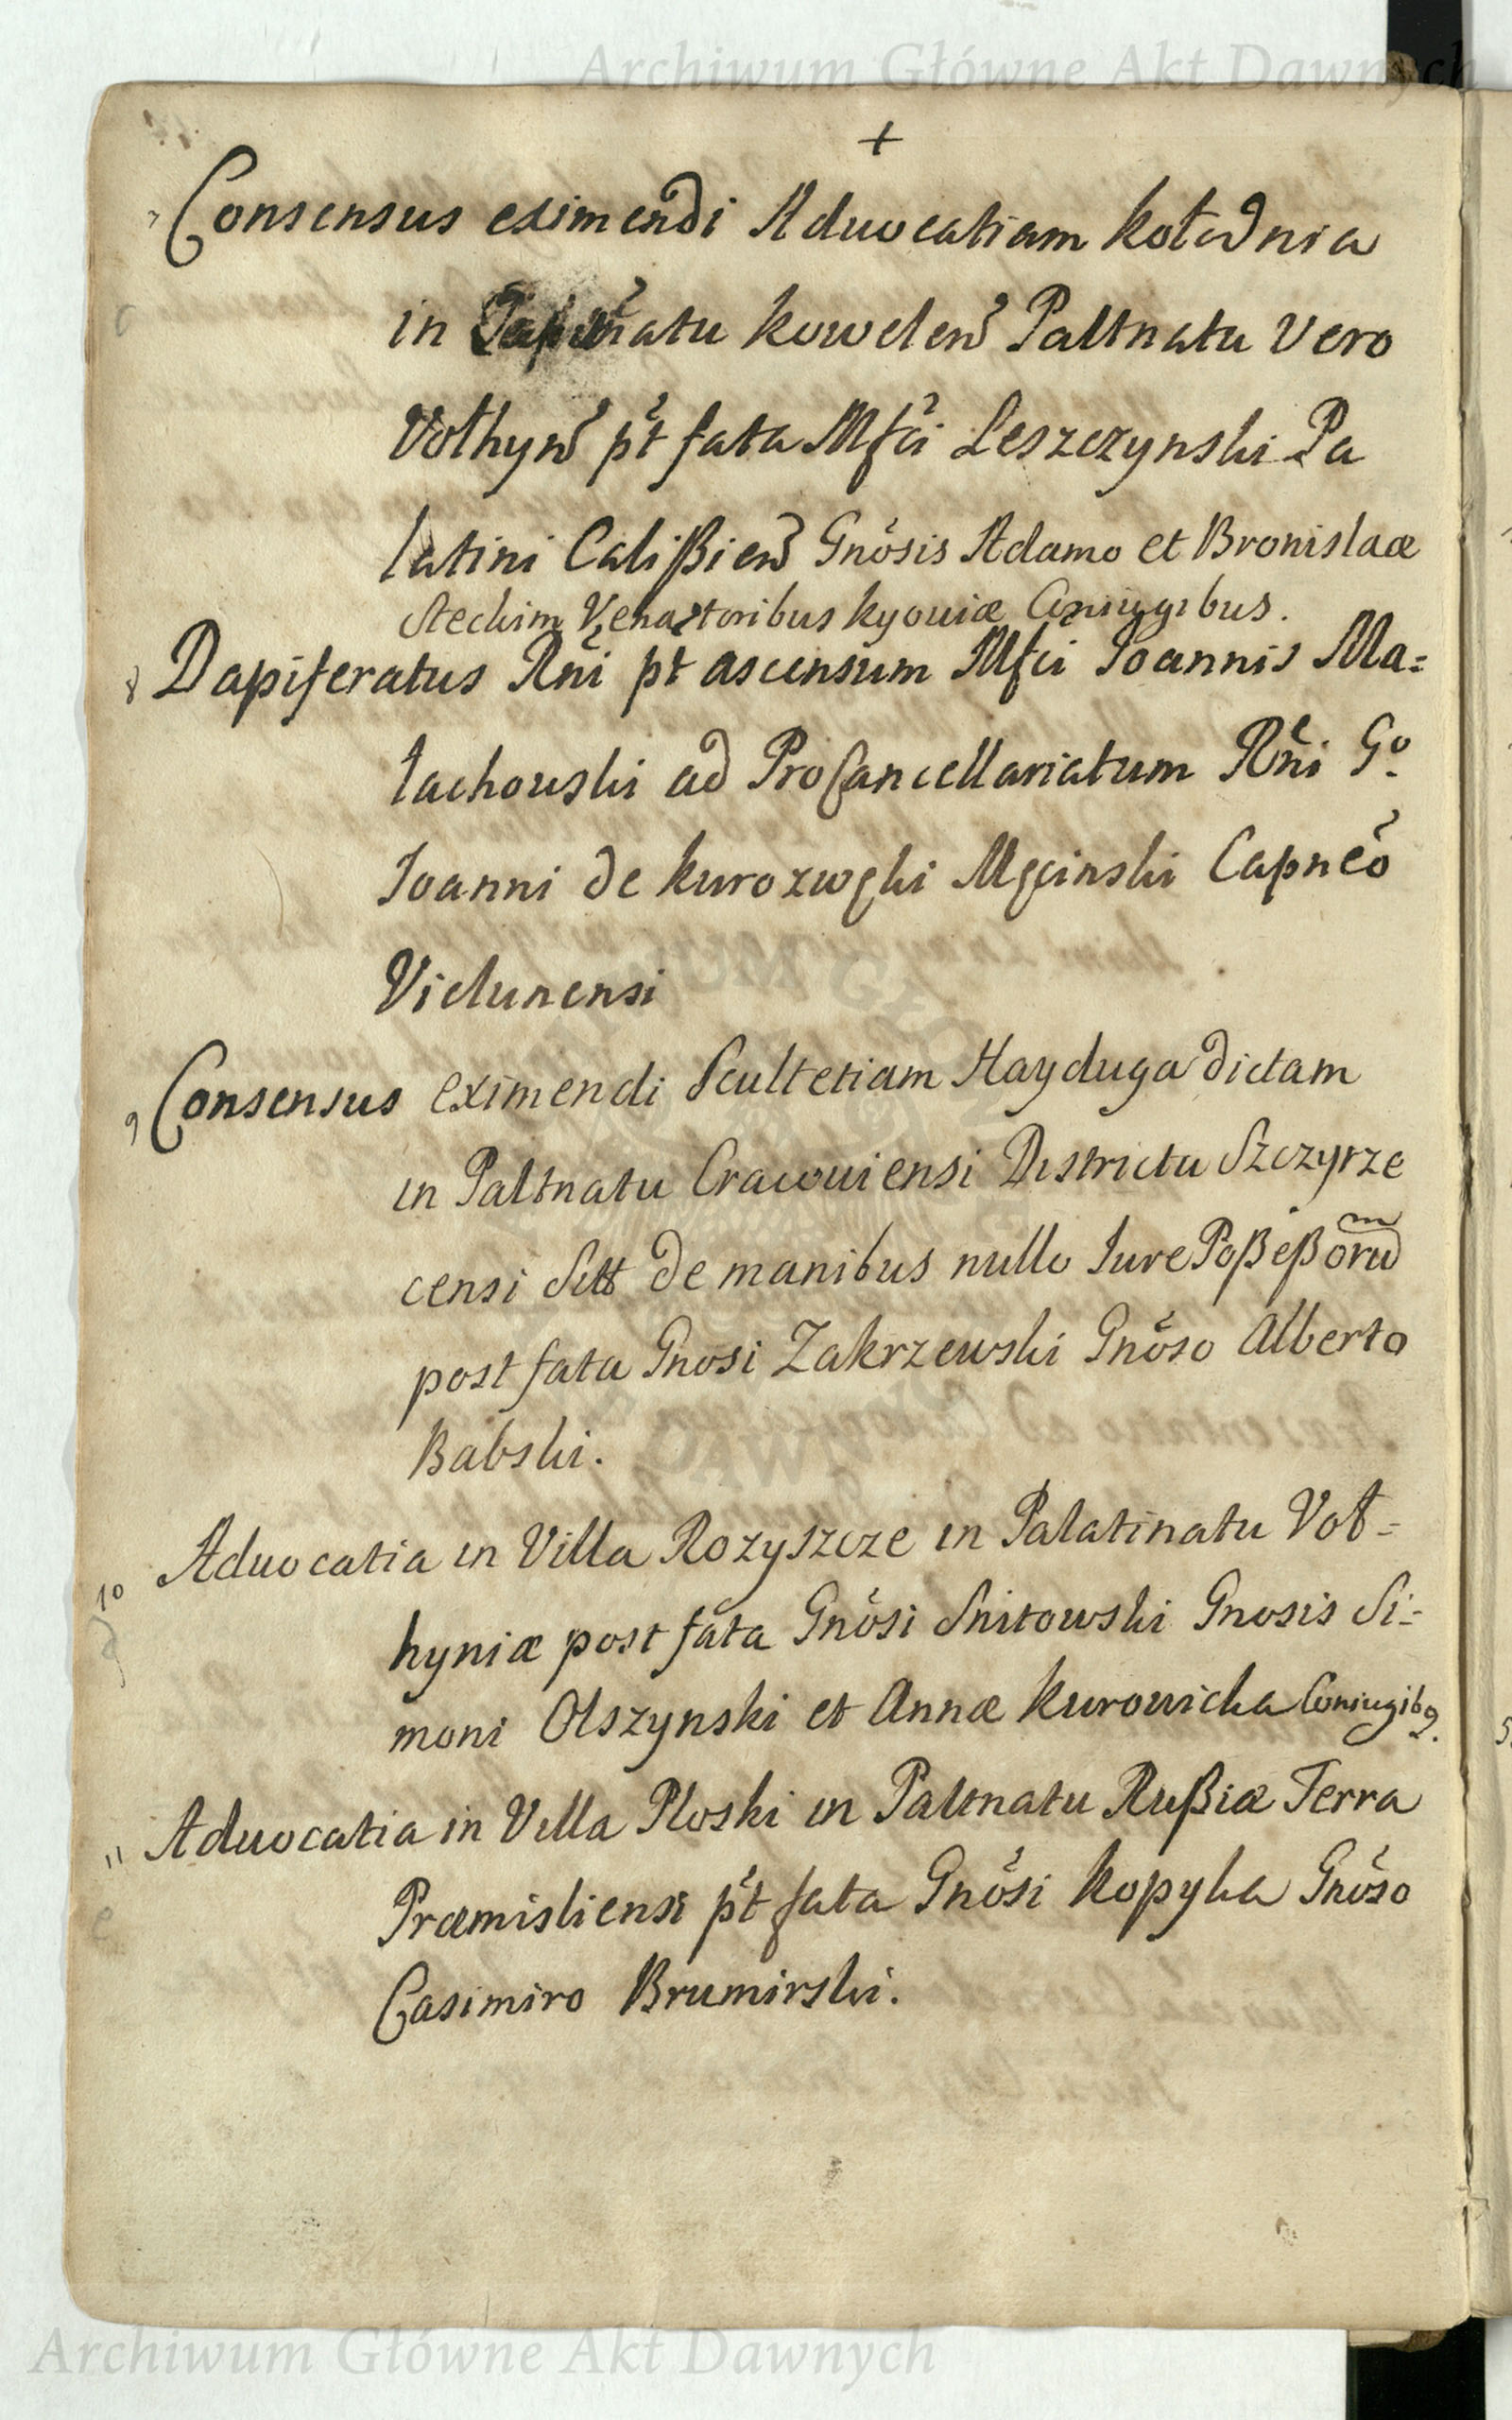 Archiwum Główne Akt Dawnych
+
7 Consensus eximendi Aduocatiam Kołodnia
in Capñatu Kowelen Paltnatu Vero
Vołhyn pt fata Mfci Leszczynski Pa
latini Calißien Gnosis Adamo et Bronislaæ
Steckim Venatoribus Kyouiæ Coniugibus.
8 Dapiferatus Rni pt ascensum Mfci Joannis Ma=
łachowski ad ProCancellariatum Rni Go.
Joanni de Kurozwęki Męcinski Capneo
Vielunensi
9 Consensus eximendi Scultetiam Hayduga dictam
in Paltnatu Cracouiensi Districtu Szczyrze
censi de manibus nullo Jure Poßeßorum
post fata Gnosi Zakrzewski Gnoso Alberto
Babski.
10 Aduocatia in Villa Rozyszcze in Palatinatu Voł=
hyniæ post fata Gnosi Snitowski Gnosis Si=
moni Olszynski et Annæ Kurowicka Coniugibq.
11 Aduocatia in Villa Ploski in Paltnatu Rußiæ Terra
Præmisliensi pt fata Gnosi Kopyka Gnoso
Casimiro Brumirski.
Archiwum Główne Akt Dawnych